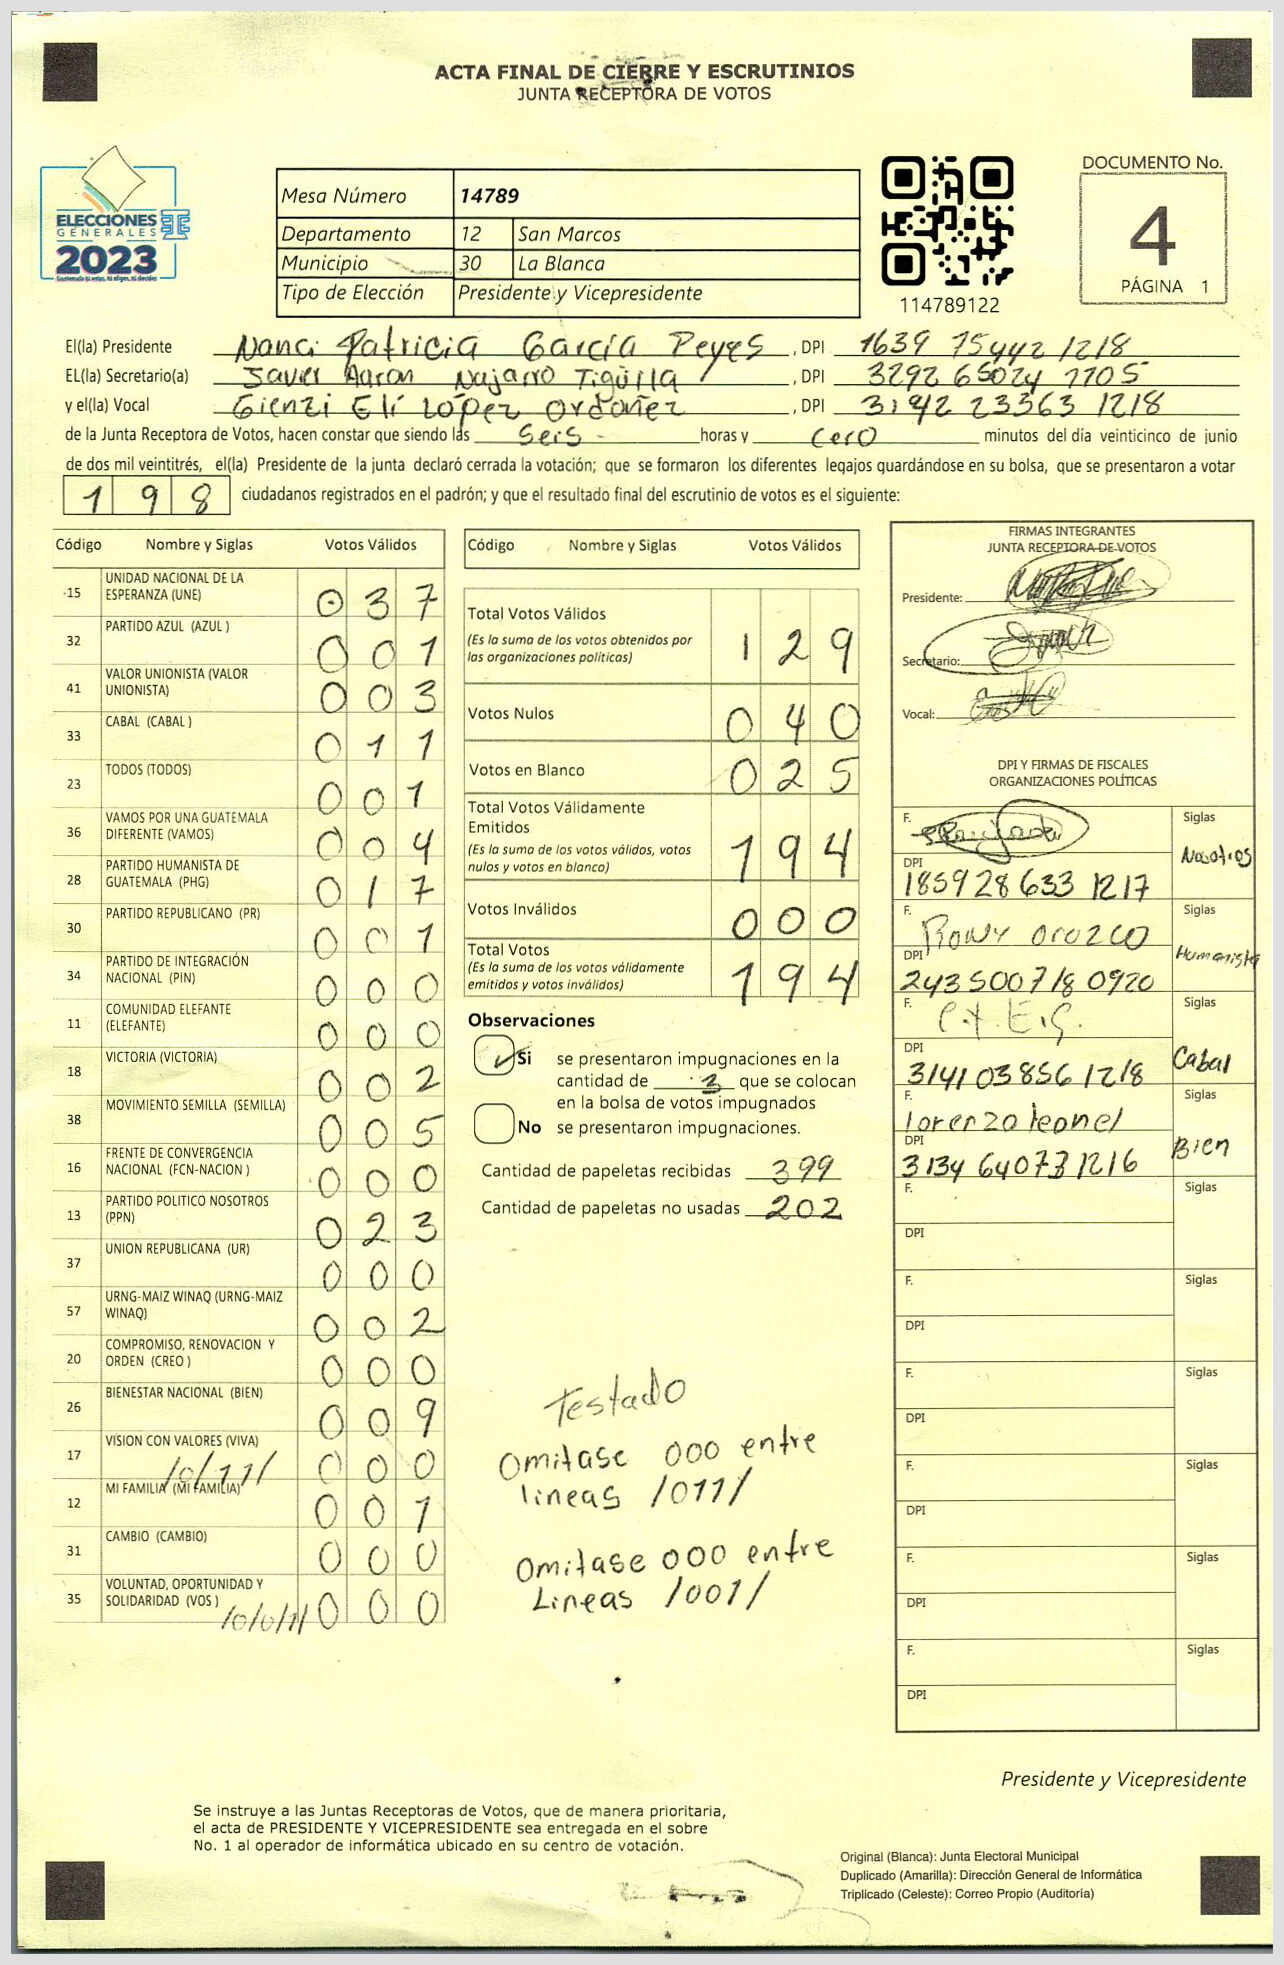 ACTA FINAL DE CIERRE Y ESCRUTINIOS
JUNTA RECEPTORA DE VOTOS
ELECCIONES
GENERALES
2023
Mesa Número 14789
Departamento 12 San Marcos
Municipio 30 La Blanca
Tipo de Elección Presidente y Vicepresidente
114789122
DOCUMENTO No.
4
PÁGINA 1
El(la) Presidente Nanci Patricia García Peyes , DPI 1639 75442 1218
EL(la) Secretario(a) Javier Aaron Najarro Tigüila , DPI 3292 65024 1705
y el(la) Vocal Gienzi Elí López Ordoñez , DPI 3142 23363 1218
de la Junta Receptora de Votos, hacen constar que siendo las seis - horas y cero minutos del día veinticinco de junio
de dos mil veintitrés, el(la) Presidente de la junta declaró cerrada la votación; que se formaron los diferentes legajos guardándose en su bolsa, que se presentaron a votar
198 ciudadanos registrados en el padrón; y que el resultado final del escrutinio de votos es el siguiente:
Código Nombre y Siglas Votos Válidos
15 UNIDAD NACIONAL DE LA ESPERANZA (UNE) 0 3 7
32 PARTIDO AZUL (AZUL ) 0 0 1
41 VALOR UNIONISTA (VALOR UNIONISTA) 0 0 3
33 CABAL (CABAL ) 0 1 1
23 TODOS (TODOS) 0 0 1
36 VAMOS POR UNA GUATEMALA DIFERENTE (VAMOS) 0 0 4
28 PARTIDO HUMANISTA DE GUATEMALA (PHG) 0 1 7
30 PARTIDO REPUBLICANO (PR) 0 0 1
34 PARTIDO DE INTEGRACIÓN NACIONAL (PIN) 0 0 0
11 COMUNIDAD ELEFANTE (ELEFANTE) 0 0 0
18 VICTORIA (VICTORIA) 0 0 2
38 MOVIMIENTO SEMILLA (SEMILLA) 0 0 5
16 FRENTE DE CONVERGENCIA NACIONAL (FCN-NACION ) 0 0 0
13 PARTIDO POLITICO NOSOTROS (PPN) 0 2 3
37 UNION REPUBLICANA (UR) 0 0 0
57 URNG-MAIZ WINAQ (URNG-MAIZ WINAQ) 0 0 2
20 COMPROMISO, RENOVACION Y ORDEN (CREO ) 0 0 0
26 BIENESTAR NACIONAL (BIEN) 0 0 9
17 VISION CON VALORES (VIVA) /0/11/ 0 0 0
12 MI FAMILIA (MI FAMILIA) 0 0 1
31 CAMBIO (CAMBIO) 0 0 0
35 VOLUNTAD, OPORTUNIDAD Y SOLIDARIDAD (VOS ) /0/0/1/ 0 0 0
Código Nombre y Siglas Votos Válidos
Total Votos Válidos
(Es la suma de los votos obtenidos por
las organizaciones políticas)
1 2 9
Votos Nulos 0 4 0
Votos en Blanco 0 2 5
Total Votos Válidamente
Emitidos
(Es la suma de los votos válidos, votos
nulos y votos en blanco)
1 9 4
Votos Inválidos 0 0 0
Total Votos
(Es la suma de los votos válidamente
emitidos y votos inválidos)
1 9 4
Observaciones
Si se presentaron impugnaciones en la
cantidad de 3 que se colocan
en la bolsa de votos impugnados
No se presentaron impugnaciones.
Cantidad de papeletas recibidas 399
Cantidad de papeletas no usadas 202
Testado
Omitase 000 entre
lineas /011/
Omitase 000 entre
Lineas /001/
FIRMAS INTEGRANTES
JUNTA RECEPTORA DE VOTOS
Presidente:
Secretario:
Vocal:
DPI Y FIRMAS DE FISCALES
ORGANIZACIONES POLÍTICAS
F. Siglas Nosotros
DPI 1859 28 633 1217
F. Rony Orozco Siglas Humanista
DPI 2435007180920
F. Siglas Cabal
DPI 3141 03856 1218
F. lorenzo leonel Siglas Bien
DPI 3134 64073 1216
F. Siglas
DPI
F. Siglas
DPI
F. Siglas
DPI
F. Siglas
DPI
F. Siglas
DPI
F. Siglas
DPI
Presidente y Vicepresidente
Se instruye a las Juntas Receptoras de Votos, que de manera prioritaria,
el acta de PRESIDENTE Y VICEPRESIDENTE sea entregada en el sobre
No. 1 al operador de informática ubicado en su centro de votación.
Original (Blanca): Junta Electoral Municipal
Duplicado (Amarilla): Dirección General de Informática
Triplicado (Celeste): Correo Propio (Auditoría)